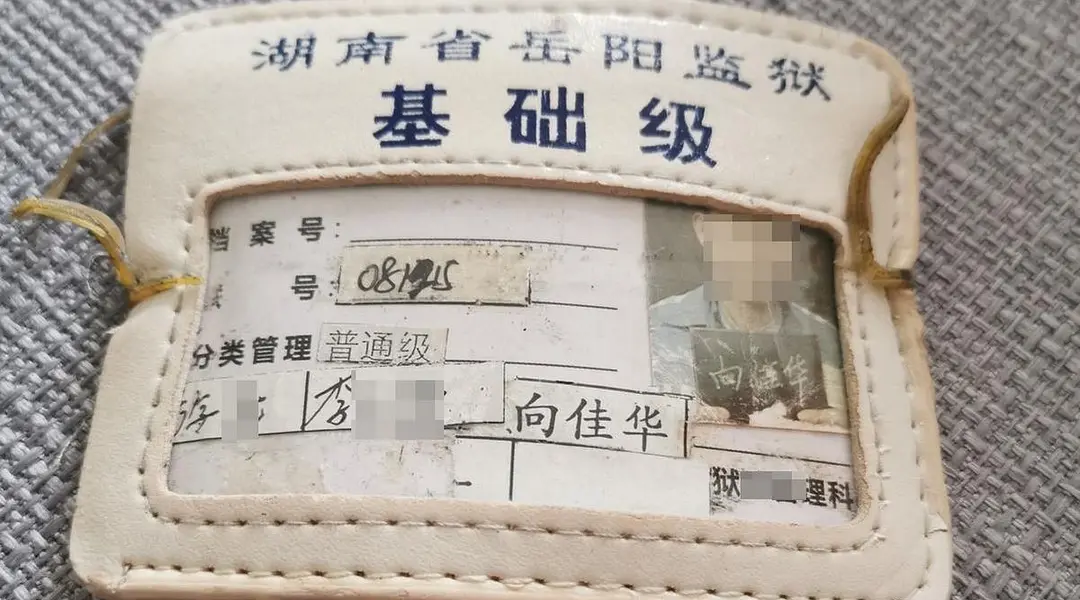 湖南省岳阳监狱
基础级
档案号：
号：
分类管理 普通级
李
向佳华
向佳华
狱 理科